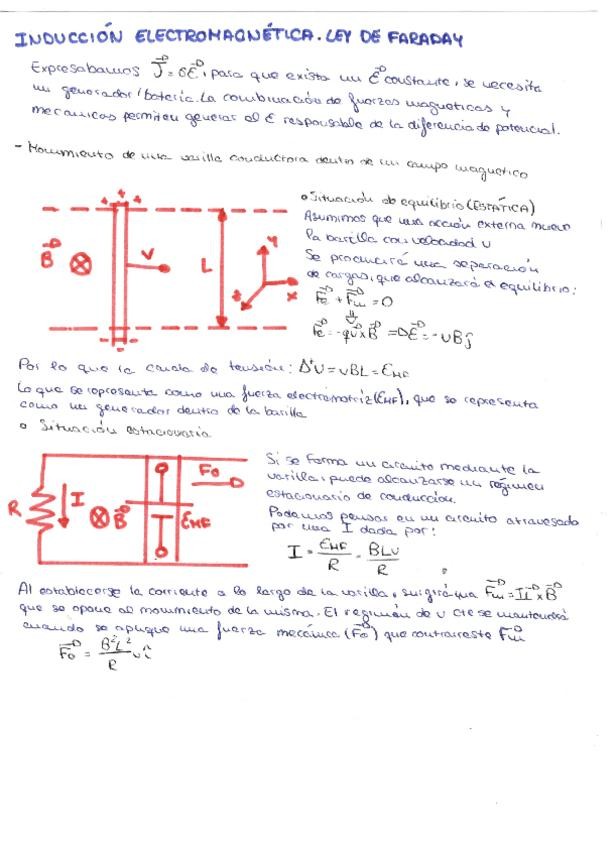 INDUCCIÓN ELECTROMAGNÉTICA. LEY DE FARADAY
Expresabamos J⃗ = σE⃗, para que exista un E⃗ constante, se necesita
un generador/bateria. La combinación de fuerzas magneticas y
mecanicas permiten generar el E responsable de la diferencia de potencial.
- Movimiento de una varilla conductora dentro de un campo magnetico
o Situación de equilibrio (ESTÁTICA)
Asumimos que una acción externa mueve
la barilla con velocidad v
Se producirá una separación
de cargas, que alcanzará el equilibrio:
F⃗e + F⃗m = 0
F⃗e = -qv⃗xB⃗ => E⃗ = -vBĵ
+ + + +
B⃗ ⊗ V L Y X z
- - - -
Por lo que la caida de tensión: ΔV = vBL = εMF
Lo que se representa como una fuerza electromotriz (εMF), que se representa
como un generador dentro de la barilla
o Situación estacionaria
R I ⊗ B⃗ εMF Fo
Si se forma un circuito mediante la
varilla, puede alcanzarse un régimen
estacionario de conducción.
Podemos pensar en un circuito atravesado
por una I dada por:
I = εMF/R = BLv/R
Al establecerse la corriente a lo largo de la varilla, surgirá una F⃗m = IL⃗xB⃗
que se opone al movimiento de la misma. El regimen de v cte se mantendrá
cuando se aplique una fuerza mecánica (F⃗o) que contrareste F⃗m
F⃗o = B²L²/R vî